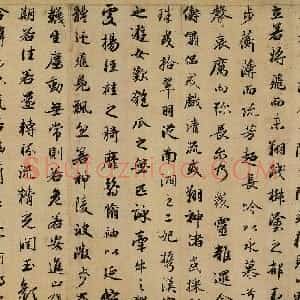 立若將飛而未翔踐椒塗之郁
步蘅薄而流芳超長吟以永慕
聲哀厲而彌長爾乃衆靈雜遝
儔嘯侶或戲清流或翔神渚或採
珠或拾翠羽從南湘之二妃攜漢
之遊女歎匏瓜之無匹詠牽牛之
處揚輕袿之猗靡翳脩袖以延
體迅飛鳧飄忽若神陵波微步
襪生塵動無常則若危若安進止
期若往若還轉眄流精光潤玉顏